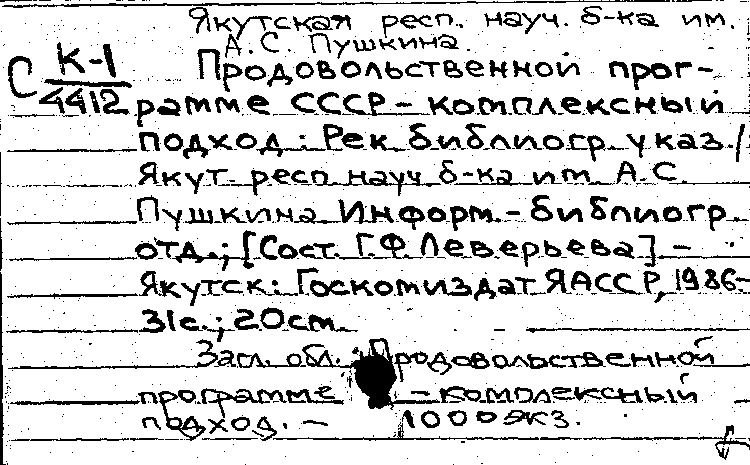 Якутская респ. науч. б-ка им.
А.С. Пушкина.
С К-1
4412
Продовольственной прог-
рамме СССР - комплексный
подход: Рек. библиогр. указ./
Якут. респ. науч. б-ка им. А.С.
Пушкина Информ.-библиогр.
отд.; [Сост. Г.Ф. Леверьева] -
Якутск: Госкомиздат ЯАССР, 1986-
31с.; 20см.
Загл. обл.: Продовольственной
программе - комплексный
подход. - 1000 экз.